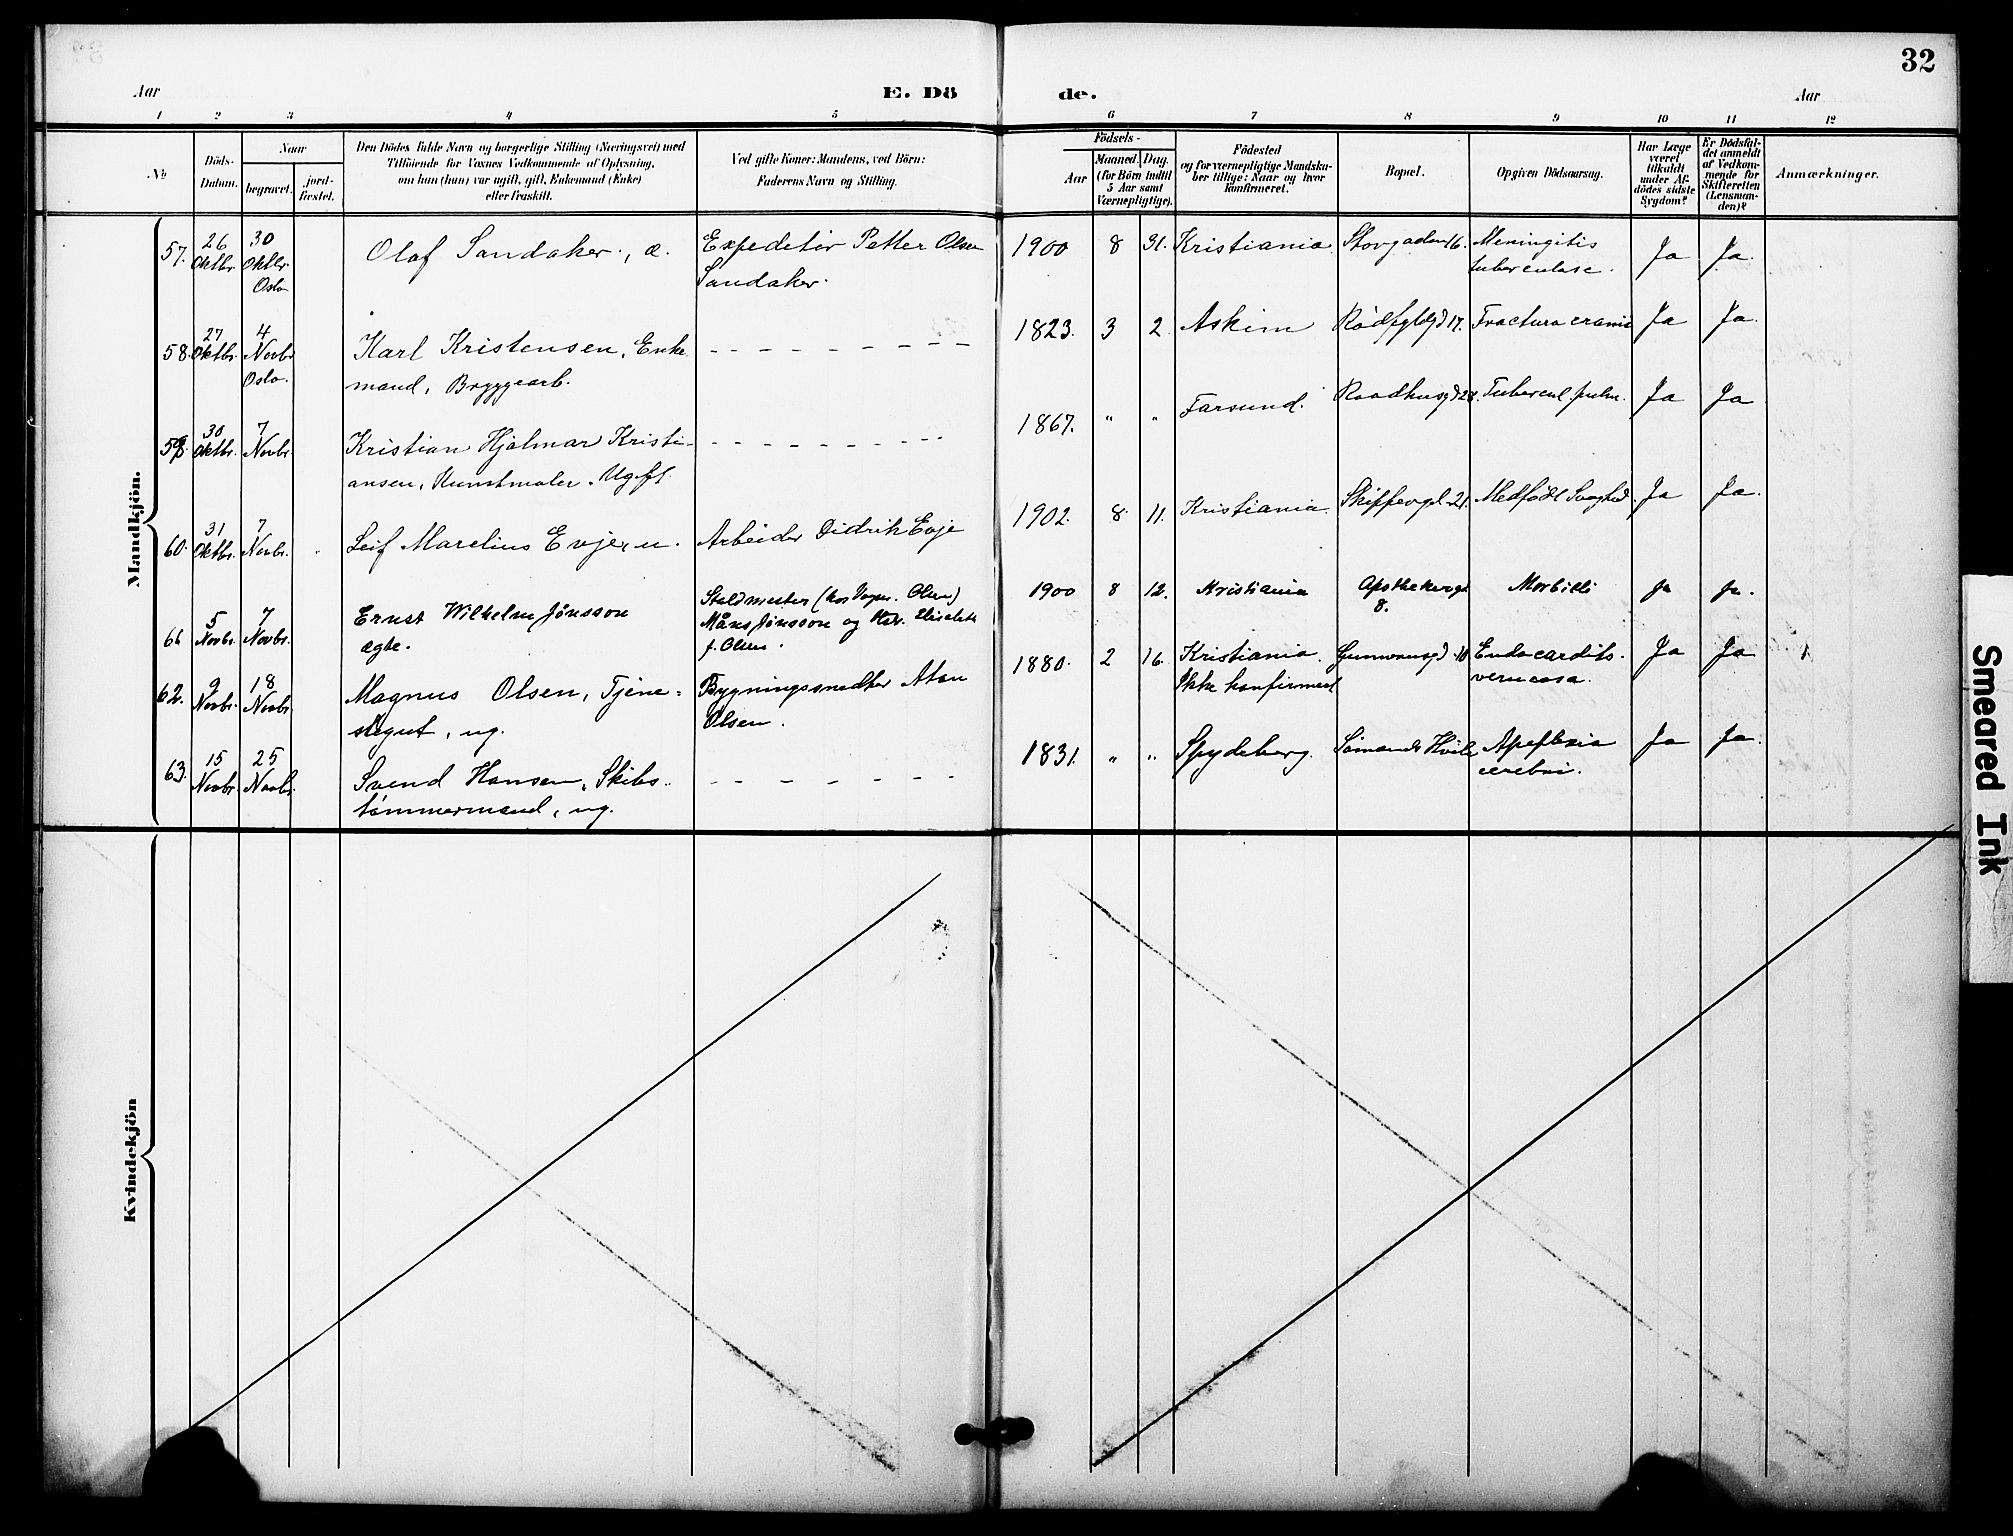 32
Aar
E. Dö
de.
Aar
1 2 3 4 5 6 7 8 9 10 11 12
No
Döds-
Datum.
Naar
begravet.
jord-
fæstet.
Den Dödes fulde Navn og borgerlige Stilling (Næringsvei) med
Tilföiende for Voxnes Vedkommende af Oplysning,
om han (hun) var ugift, gift, Enkemand (Enke)
eller fraskilt.
Ved gifte Koner: Mandens, ved Börn:
Faderens Navn og Stilling.
Födsels-
Aar
Maaned. Dag.
(for Börn indtil
5 Aar samt
Værnepligtige).
Födested
og for værnepligtige Mandska-
ber tillige: Naar og hvor
konfirmeret.
Bopæl.
Opgiven Dödsaarsag.
Har Læge
været
tilkaldt
under Af-
dödes sidste
Sygdom?
Er Dödsfal-
det anmeldt
af Vedkom-
mende for
Skifteretten
(Lensman-
den)?
Anmærkninger.
Mandkjön.
57. 26 Oktbr. 30 Oktbr. Oslo Olaf Sandaker, æ. Expeditör Petter Olsen
Sandaker. 1900 8 31. Kristiania Storgaden 16. Meningitis
tuberculose. Ja Ja.
58. 27 Oktbr. 4 Novbr. Oslo. Karl Kristensen, Enke-
mand, Bryggearb. 1823. 3 2. Askim Rödfyldgd 17. Fractura cranii Ja Ja.
59. 30 Oktbr. 7 Novbr. Kristian Hjalmar Kristi-
ansen, Kunstmaler. Ugift 1867. " " Farsund. Raadhusgd 28. Tubercul. pulm. Ja Ja
60. 31 Oktbr. 7 Novbr. Leif Marelius Evjeru. Arbeider Didrik Evje 1902. 8. 11. Kristiania. Skippergd. 21. Medfödt Svaghed Ja Ja.
61 5 Novbr. 7 Novbr. Ernst Wilhelm Jönsson
ægte. Staldmester (hos Vogm. Olsen)
Måns Jönsson og Elisabeth
f. Olsen. 1900 8 12. Kristiania Apothekergd.
8. Morbilli Ja Ja.
62. 9 Novbr. 18 Novbr. Magnus Olsen, Tjene-
stegut, ug. Bygningssnedker
Olsen. 1880. 2 16. Kristiania.
Ikke konfirmert 10 Endocardits.
verucosa. Ja Ja
63. 15 Novbr. 25 Novbr. Svend Hansen, Skibs-
tömmermand, ug. 1831. " " Spydeberg. Sömands Hvile Apoplexia
cerebri. Ja Ja.
Kvindekjön
Smeared Ink